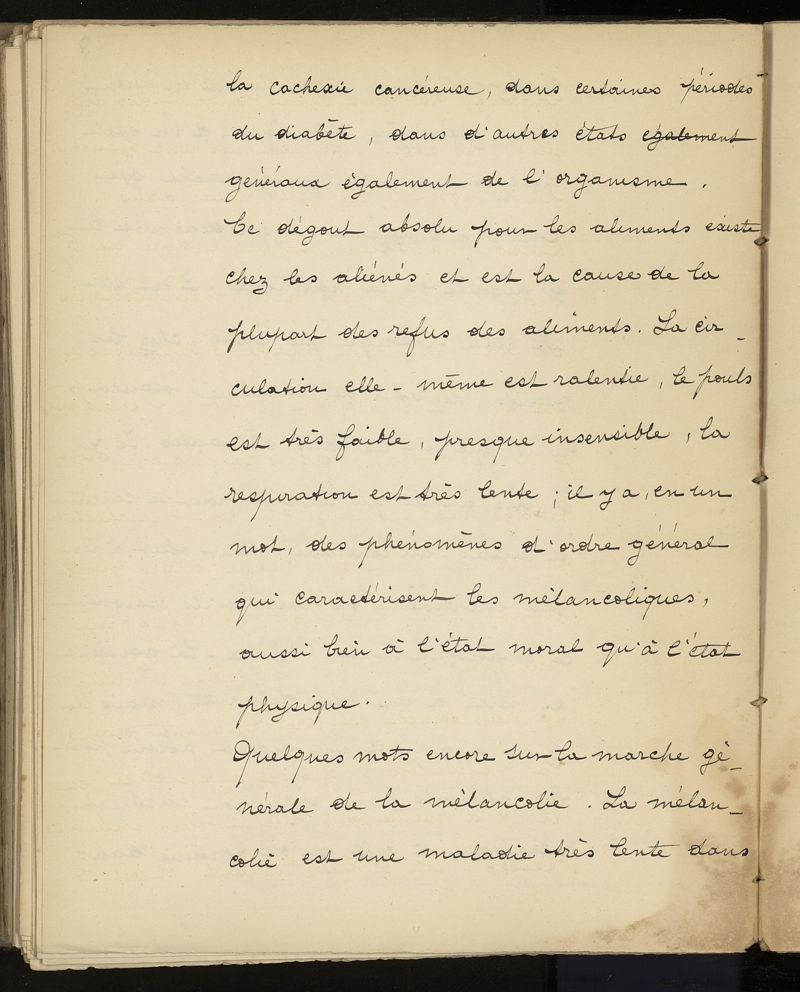 la cachexie cancéreuse, dans certaines périodes
du diabète, dans d'autres états également
généraux également de l'organisme.
Ce dégout absolu pour les aliments existe
chez les aliénés et est la cause de la
plupart des refus des aliments. La cir_
culation elle-même est ralentie, le pouls
est très faible, presque insensible, la
respiration est très lente ; il y a, en un
mot, des phénomènes d'ordre général
qui caractérisent les mélancoliques,
aussi bien à l'état moral qu'à l'état
physique.
Quelques mots encore sur la marche gé_
nérale de la mélancolie. La mélan_
colie est une maladie très lente dans